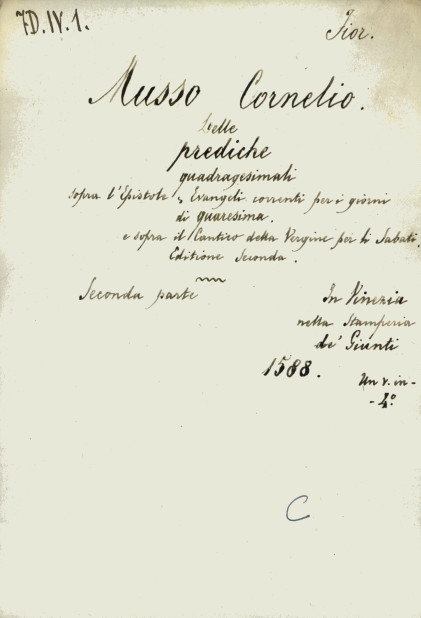 7D.IV.1.
Fior.
Musso Cornelio.
Delle
prediche
quadragesimali
sopra l'Epistole e Evangeli correnti per i giorni
di quaresima.
e sopra il Cantico della Vergine per li Sabati.
Editione Seconda.
Seconda parte
In Vinezia
nella Stamperia
de' Giunti
1588.
Un v. in-
-4.º
C